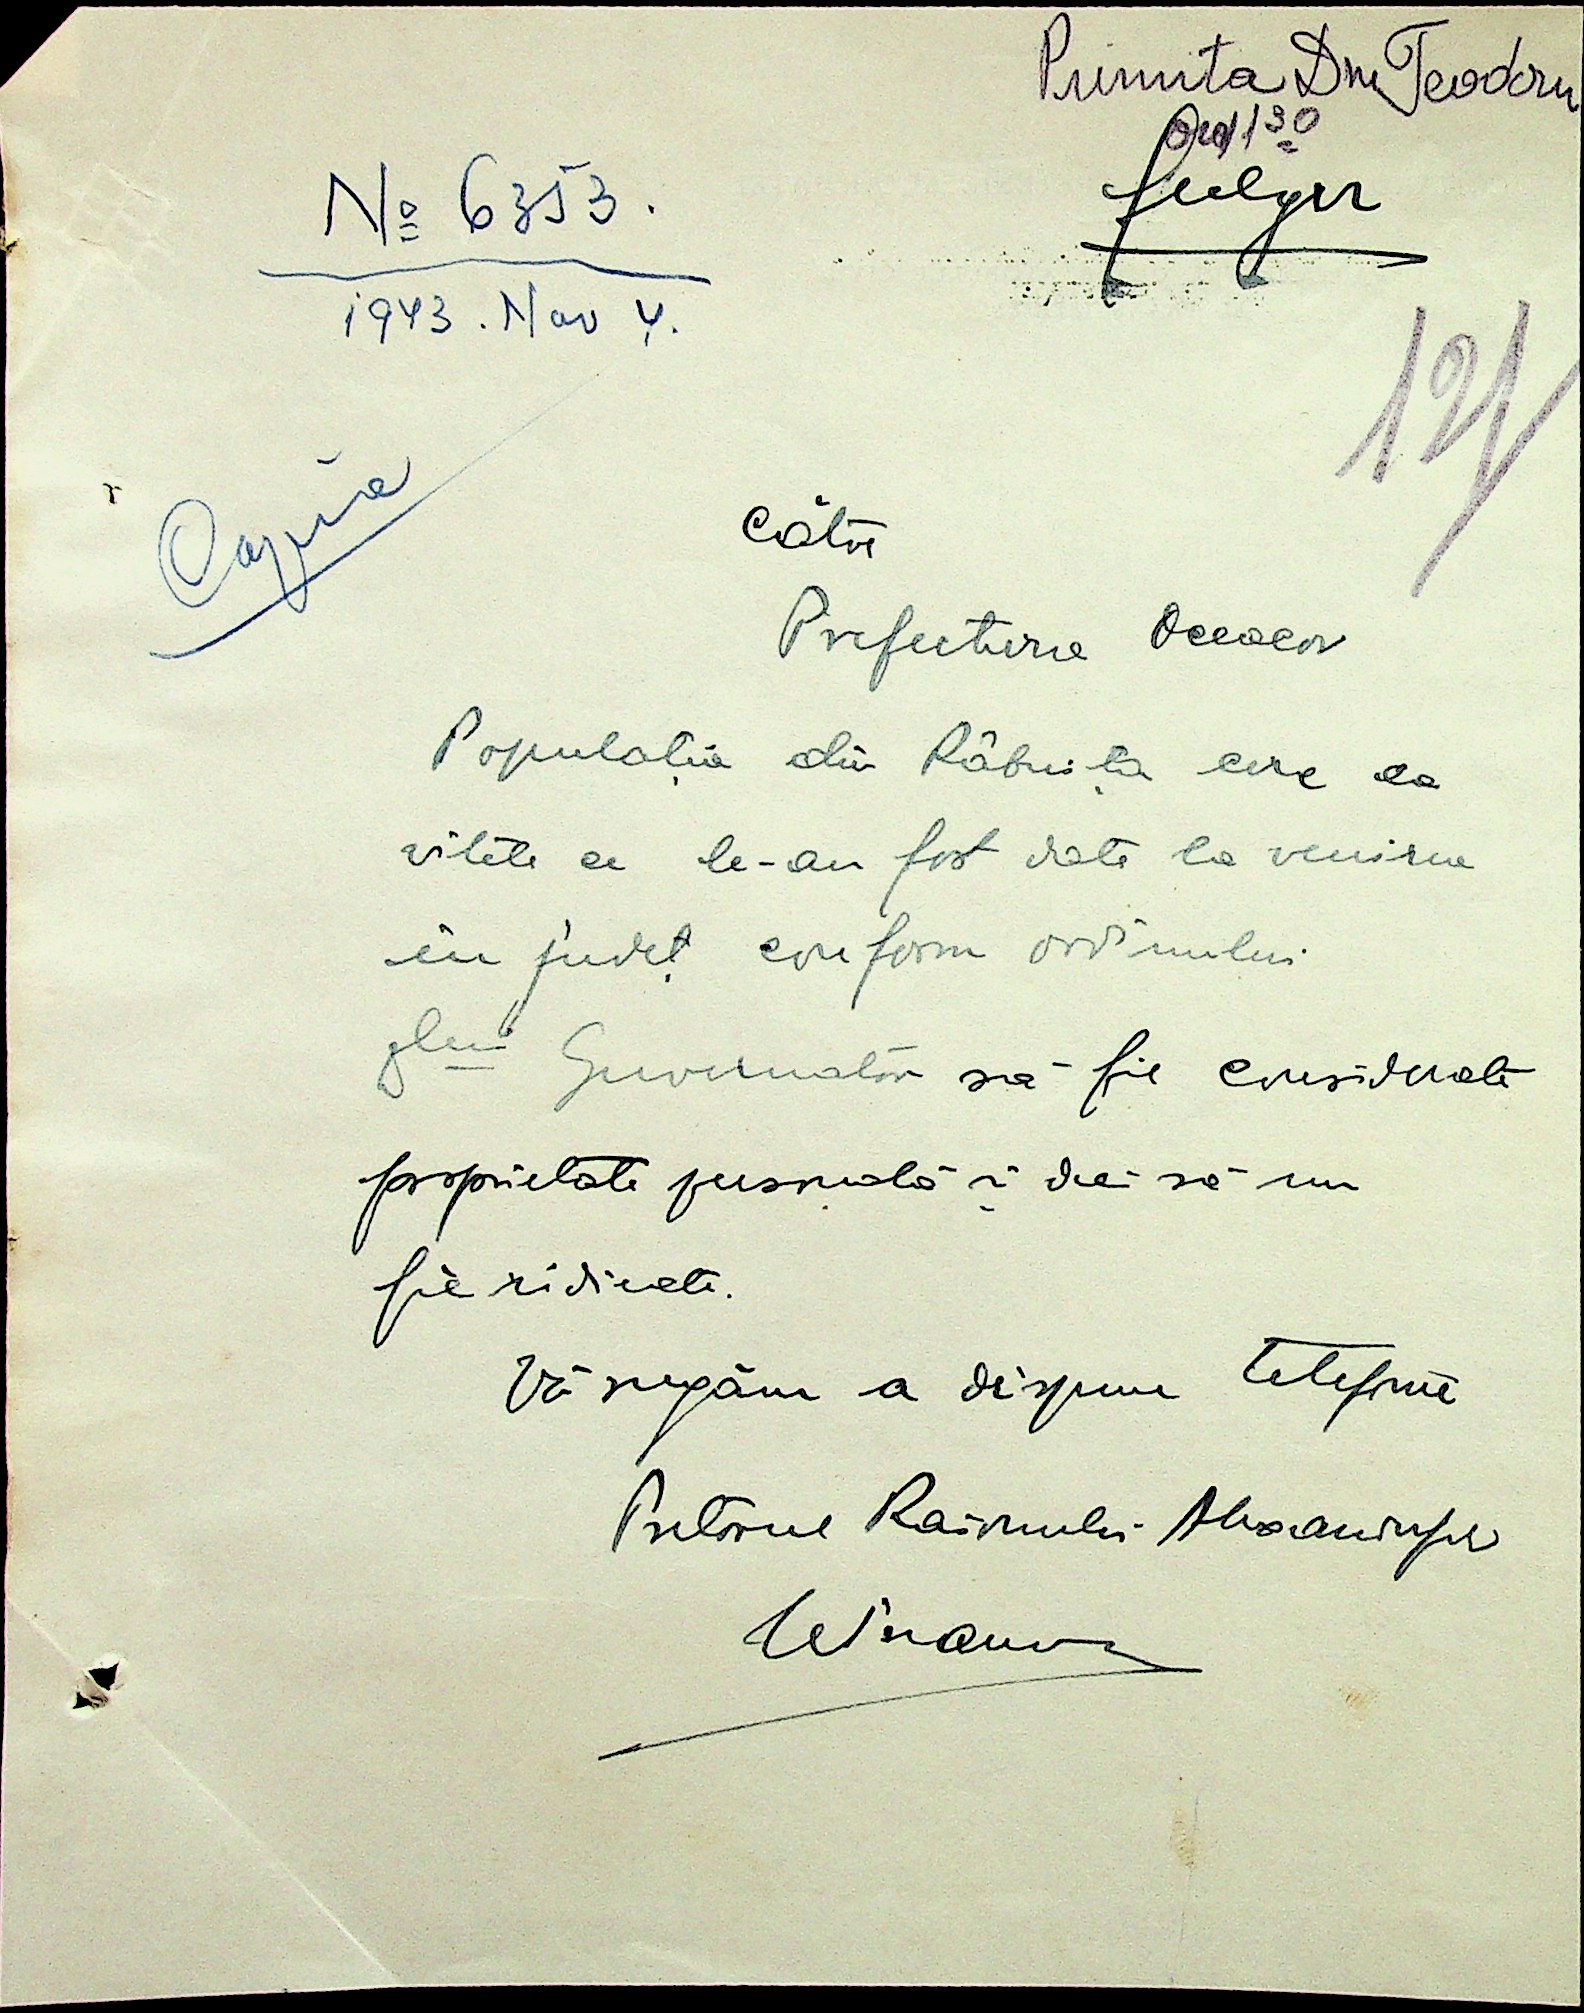 Primita Dnu Teodoru
Ora 1 30
fulger
№ 6353.
1943. Nov 4.
121
Copie
Către
Prefectura Oceacov
Populația din Râbnița cere ca
vitele ce le-au fost date la venirea
în județ conform ordinului
dlui Guvernator să fie considerate
proprietate personală și deci să nu
fie ridicate.
Vă rugăm a dispune telefonic
Pretorul Raionului Alexandrfeld